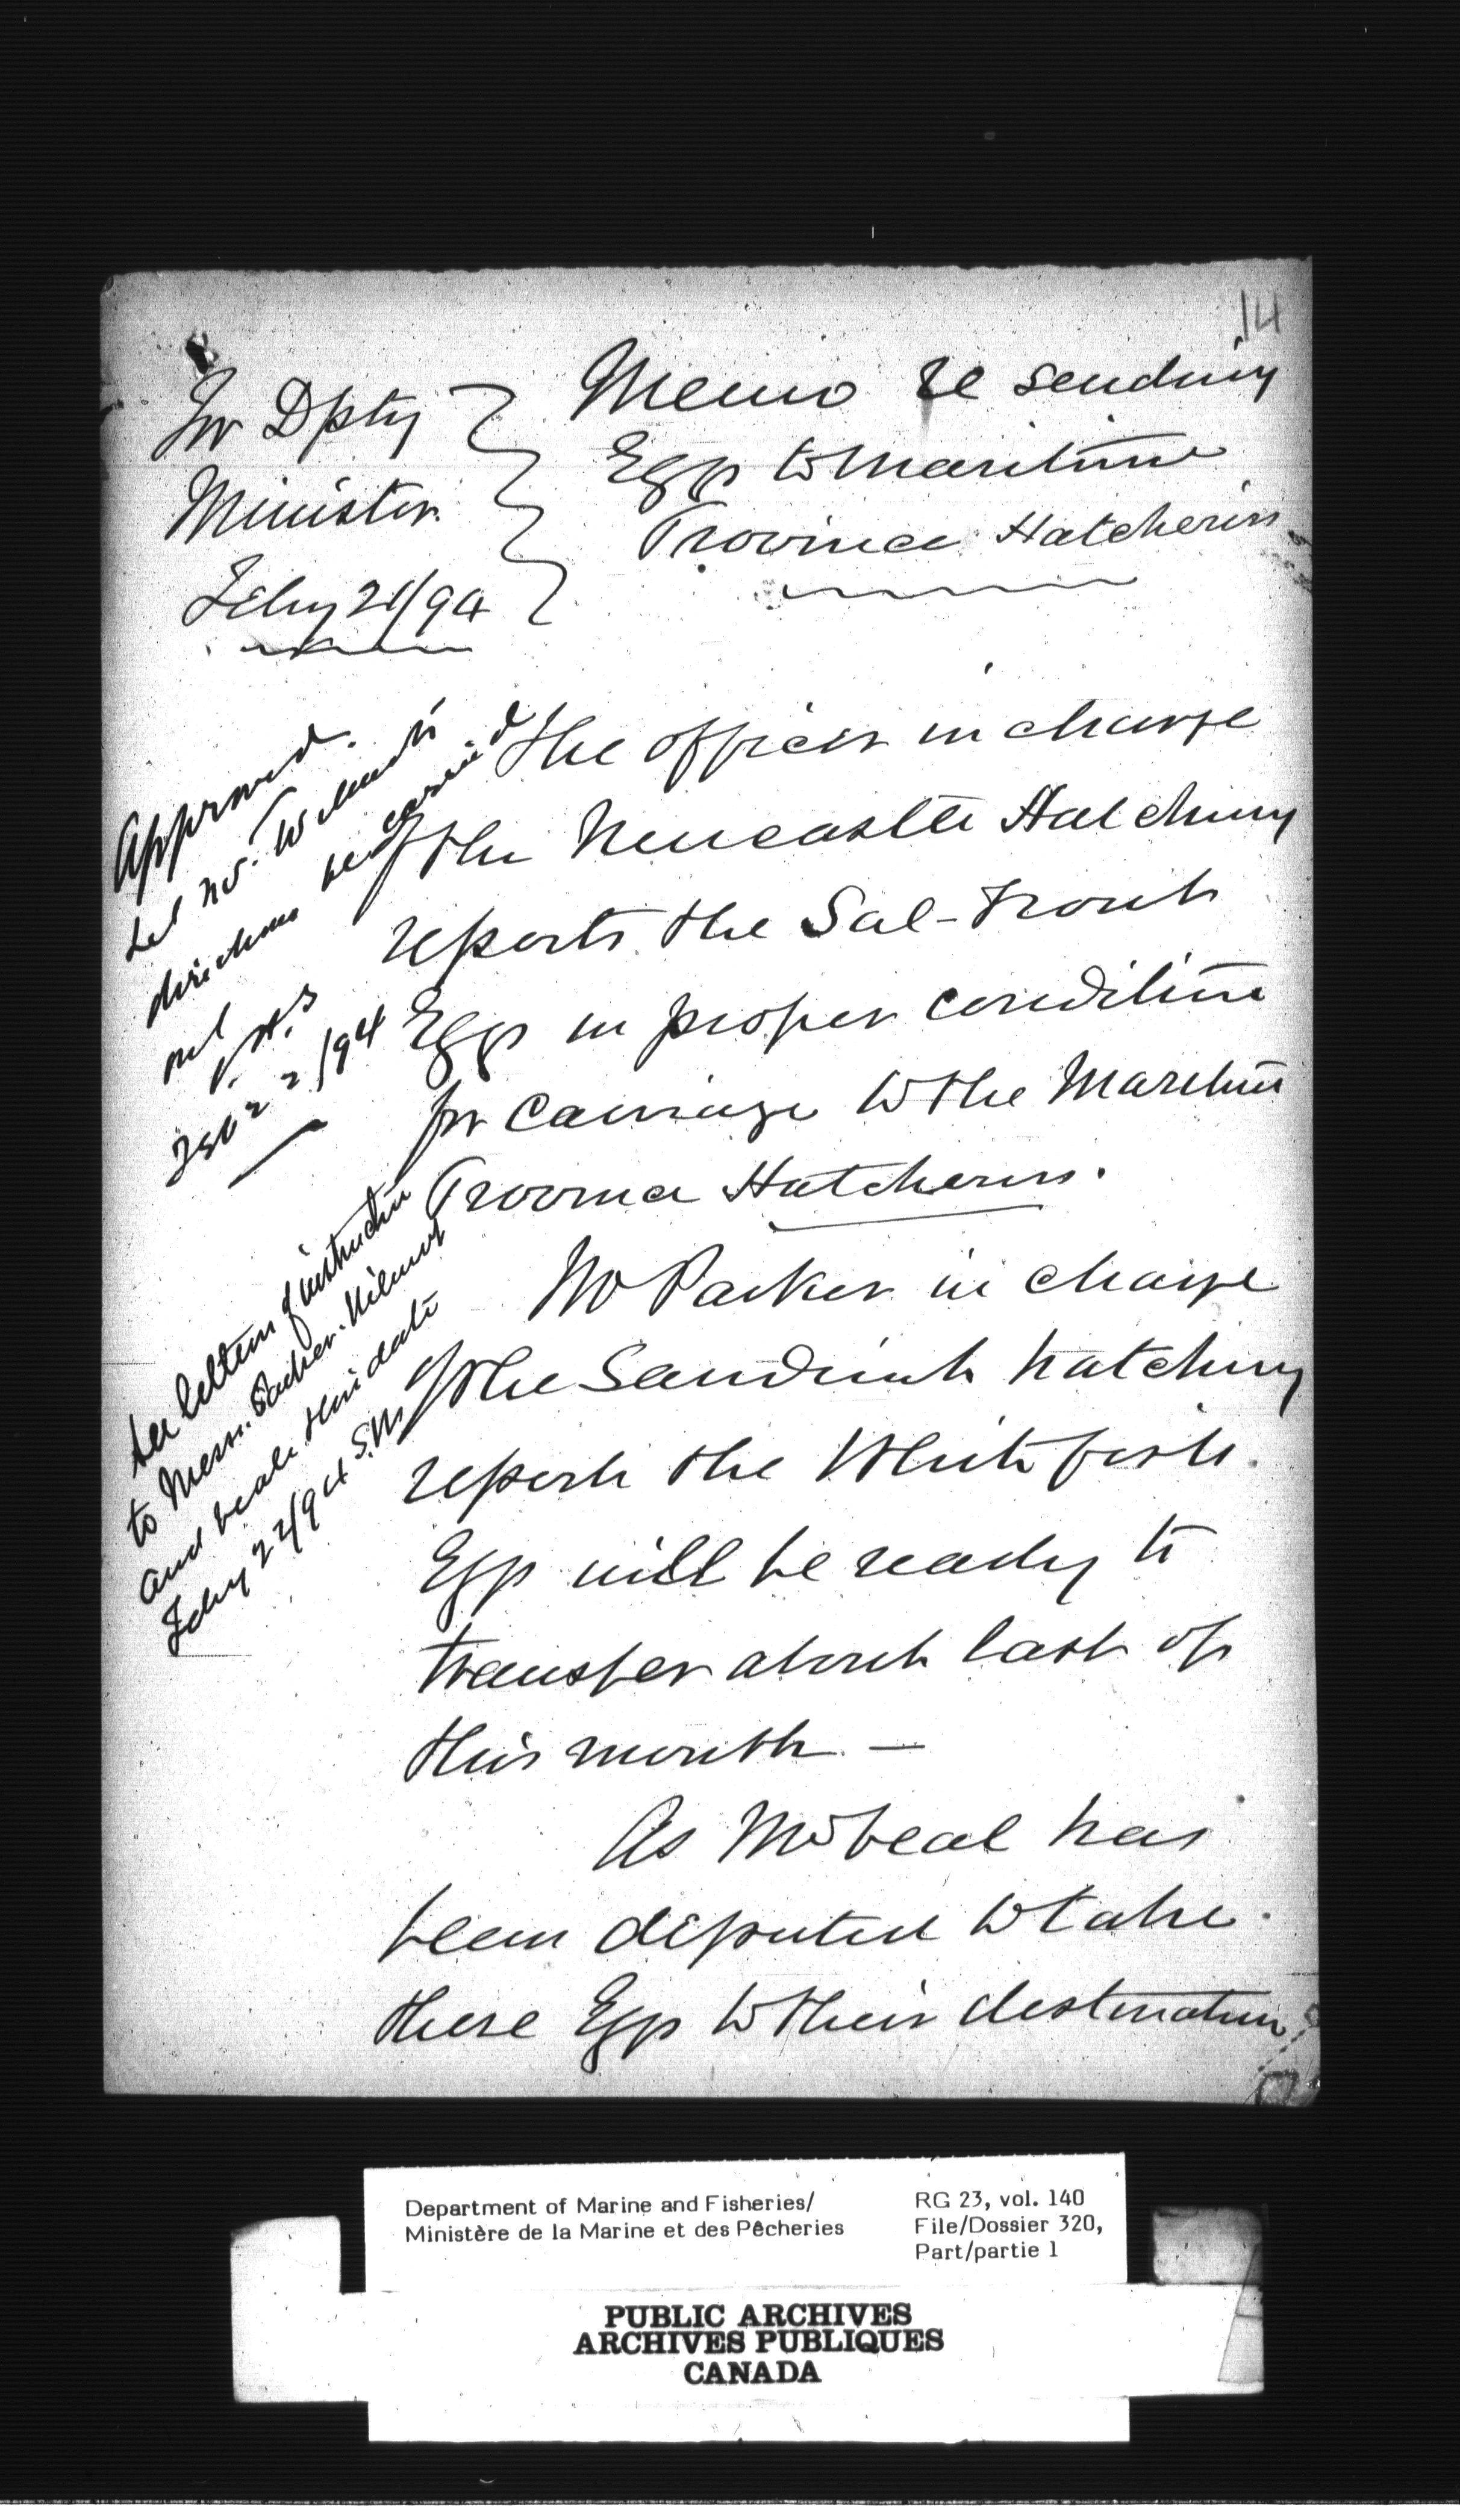 14
For Dpty
Minister.
Feby 21/94
Memo re sending
Eggs to Maritime
Province Hatcheries
Approved.
Let Mr. Wilmot's
directions be carried
out
Feb 22/94
The officer in charge
of the Newcastle Hatchery
reports the Sal-Trout
Eggs in proper condition
for carriage to the Maritime
Province Hatcheries.
See letters of instruction
to Messrs. Parker. Wilmot
and Veale this date
Feby 22/94 S.W
Mr Parker in charge
of the Sandwich hatchery
reports the Whitefish
Eggs will be ready to
transfer about last of
this month —
As Mr Veal has
been deputed to take
these Eggs to their destination
Department of Marine and Fisheries/
Ministère de la Marine et des Pêcheries
RG 23, vol. 140
File/Dossier 320,
Part/partie 1
PUBLIC ARCHIVES
ARCHIVES PUBLIQUES
CANADA